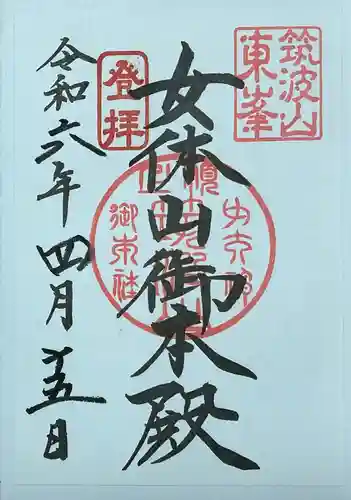 筑波山
東峯
女体山御本殿
登拝
令和六年四月十五日